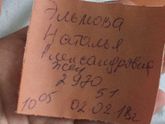 Эльмова
Наталья
Александровна
2970
51
1005 02.02.18г